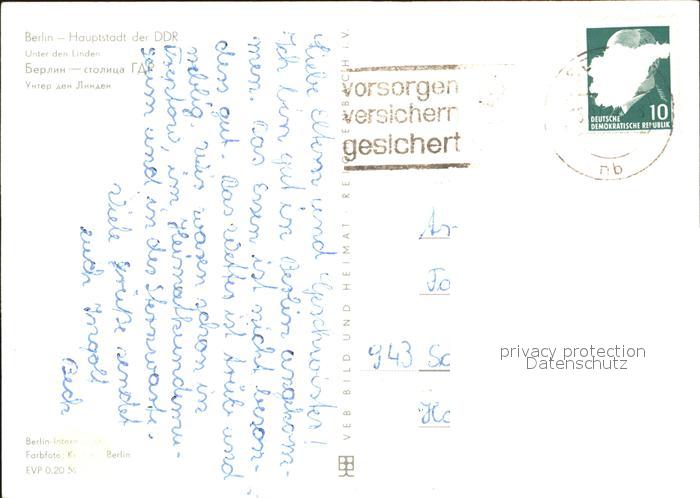 Berlin – Hauptstadt der DDR
Unter den Linden
Берлин — столица ГД
Унтер ден Линден
Liebe Eltern und Geschwister!
Ich bin gut in Berlin angekom-
men. Das Essen ist nicht beson-
ders gut. Das Wetter ist trübe und
neblig. Wir waren schon in
Treptow, im Heimatkundemu-
seum und in der Sternwarte.
Viele Grüße sendet
euch
Berlin-Inter
Farbfoto: K Berlin
EVP 0,20 M
VEB BILD UND HEIMAT · RE BACH I. V.
vorsorgen
versichern
gesichert
DEUTSCHE
DEMOKRATISCHE REPUBLIK
10
nb
An
Fa
943 Sc
privacy protection
Datenschutz